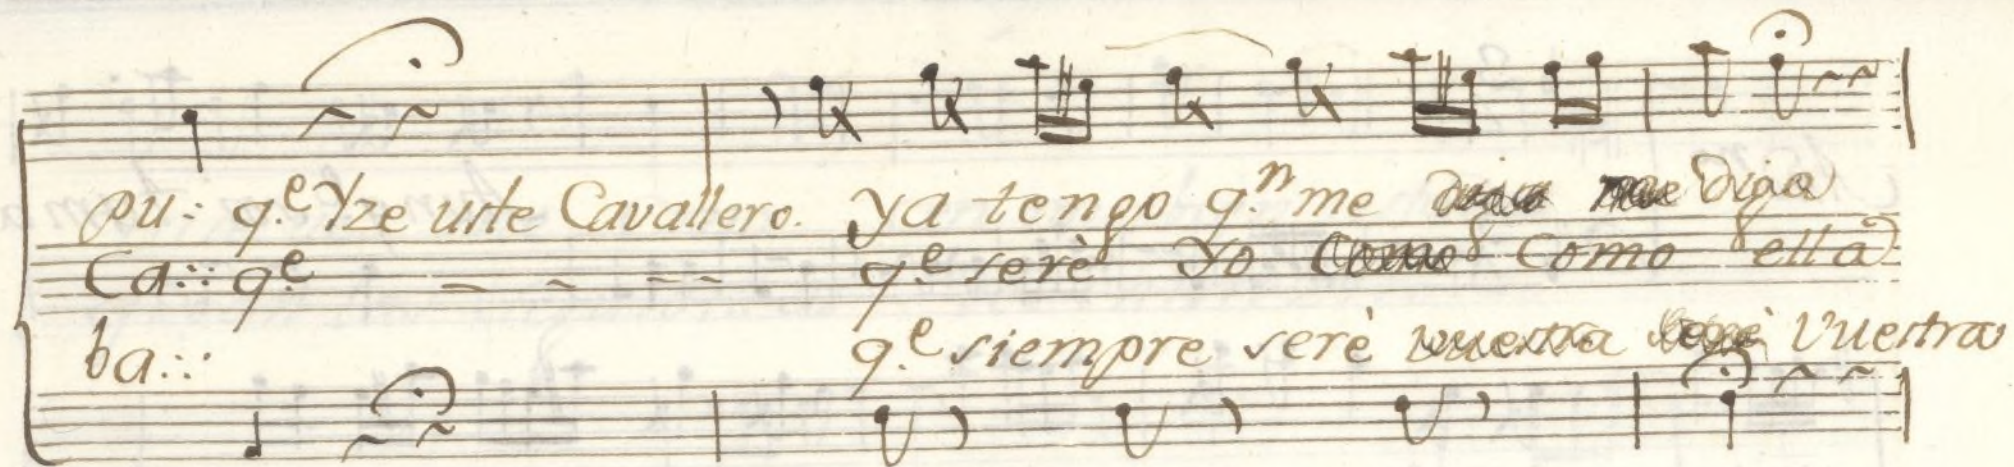 pu: q.e Yze uste Cavallero. ya tengo q.n me diga
Ca:: q.e _ _ _ _ q.e serè Yo Como ella
ba:: q.e siempre serè Vuestra